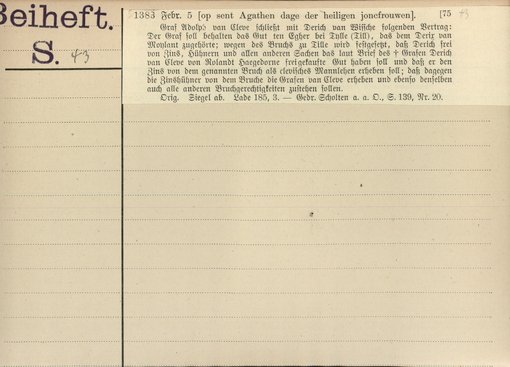 Beiheft.
S. 43
1383 Febr. 5 [op sent Agathen dage der heiligen joncfrouwen]. [75 43
Graf Adolph van Cleve schließt mit Derich van Wissche folgenden Vertrag:
Der Graf soll behalten das Gut ten Egher bei Tylle (Till), das dem Derix van
Moylant zugehörte; wegen des Bruchs zu Tille wird festgesetzt, daß Derich frei
von Zins, Hühnern und allen anderen Sachen das laut Brief des † Grafen Derich
van Cleve von Rolandt Haegedorne freigekaufte Gut haben soll und daß er den
Zins von dem genannten Bruch als clevisches Mannlehen erheben soll; daß dagegen
die Zinshühner von dem Bruche die Grafen van Cleve erheben und ebenso denselben
auch alle anderen Bruchgerechtigkeiten zustehen sollen.
Orig. Siegel ab. Lade 185, 3. — Gedr. Scholten a. a. O., S. 139, Nr. 20.